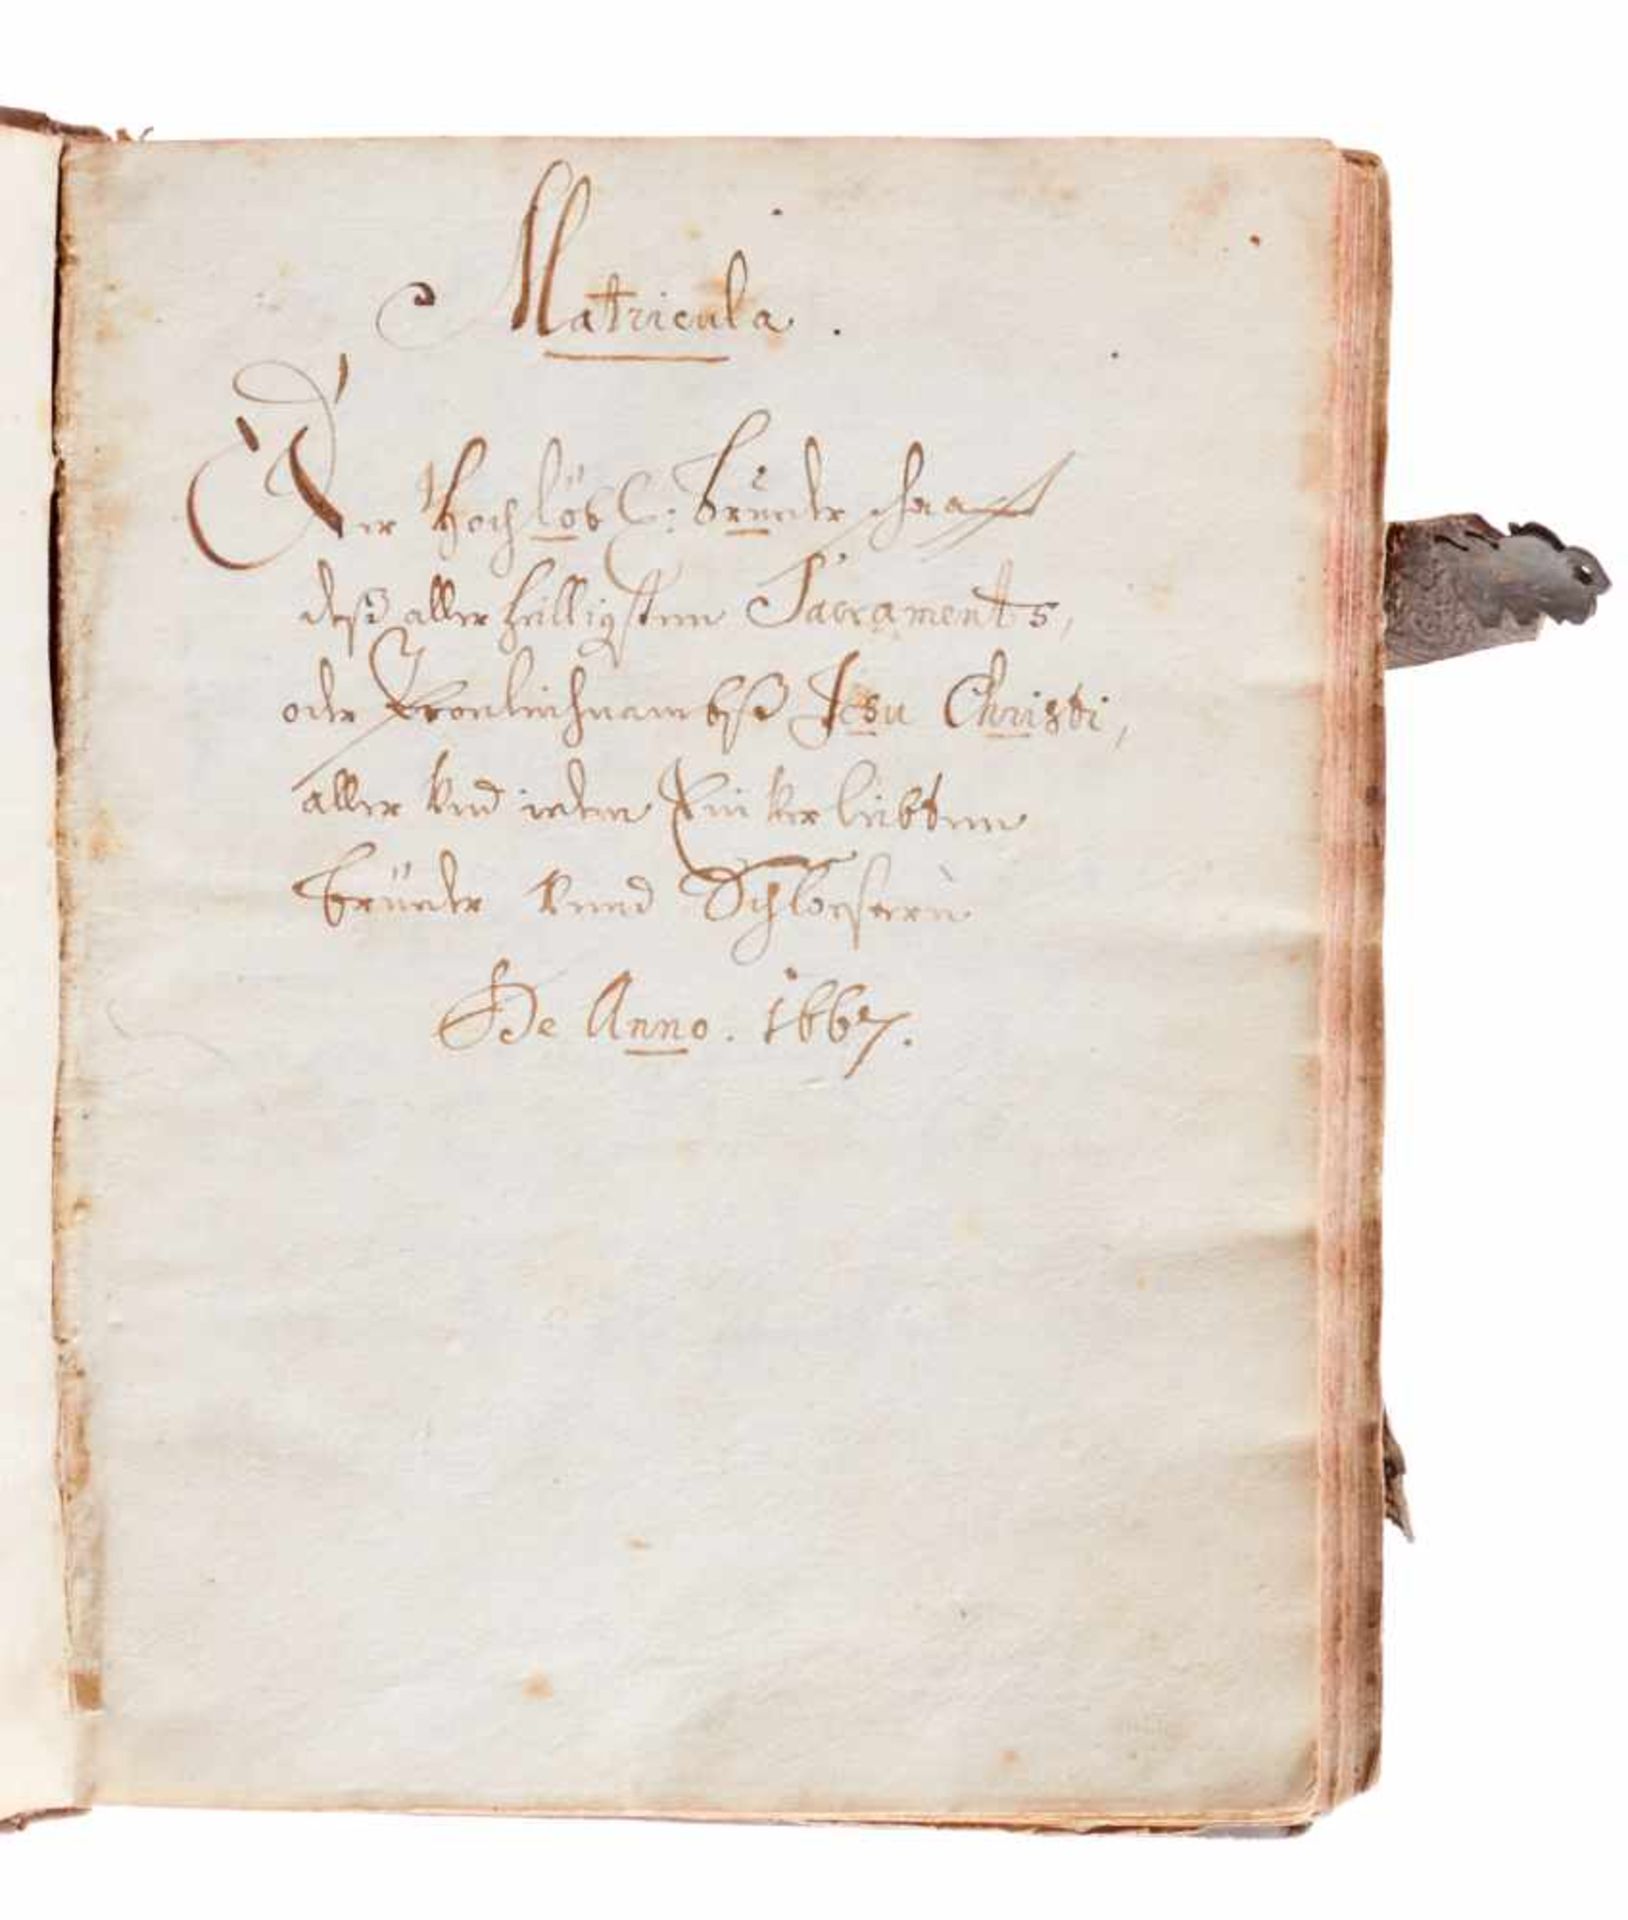 Matricula.
Der Hochlöbl: Brüederschaafft
deß aller heilligisten Sacraments,
oder Fronleichnambß Jesu Christi,
aller Vnd ieden Einverleibten
Brüeder Vnnd Schwestern
De Anno. 1667.